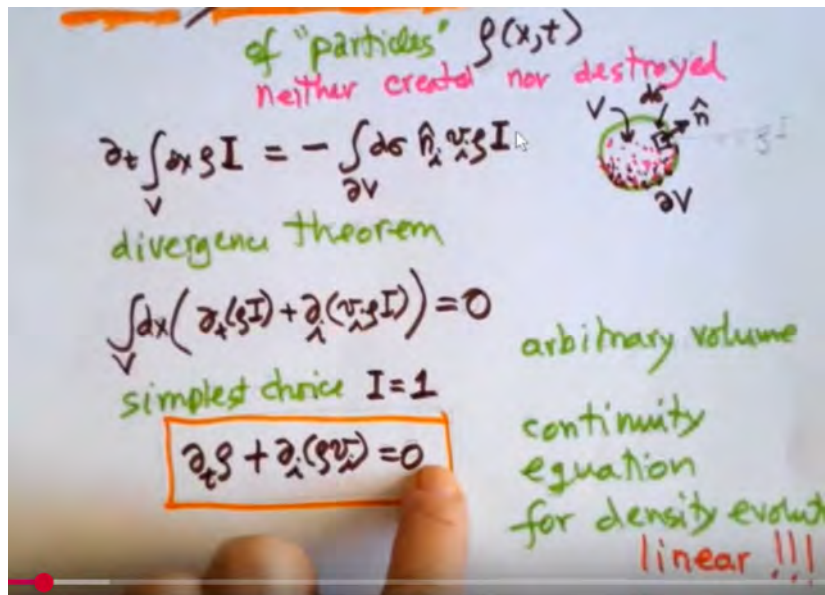 of "particles" ρ(x,t)
neither created nor destroyed
∂ₜ∫dx ρI = - ∫dσ n̂ᵢ vᵢ ρI
V
∂V
V
dσ
n̂
∂V
ρI
divergence theorem
∫dx(∂ₜ(ρI) + ∂ᵢ(vᵢρI)) = 0
V
arbitrary volume
simplest choice I = 1
∂ₜρ + ∂ᵢ(ρvᵢ) = 0
continuity
equation
for density evolut
linear !!!